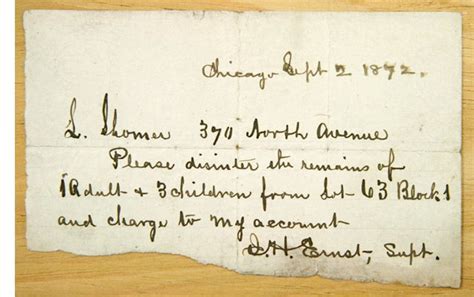 Chicago Sept 2 1872.
L. Shomer 370 North Avenue
Please disinter the remains of
1 Adult + 3 children from Lot 63 Block 1
and charge to my account
J. H. Ernst, Supt.